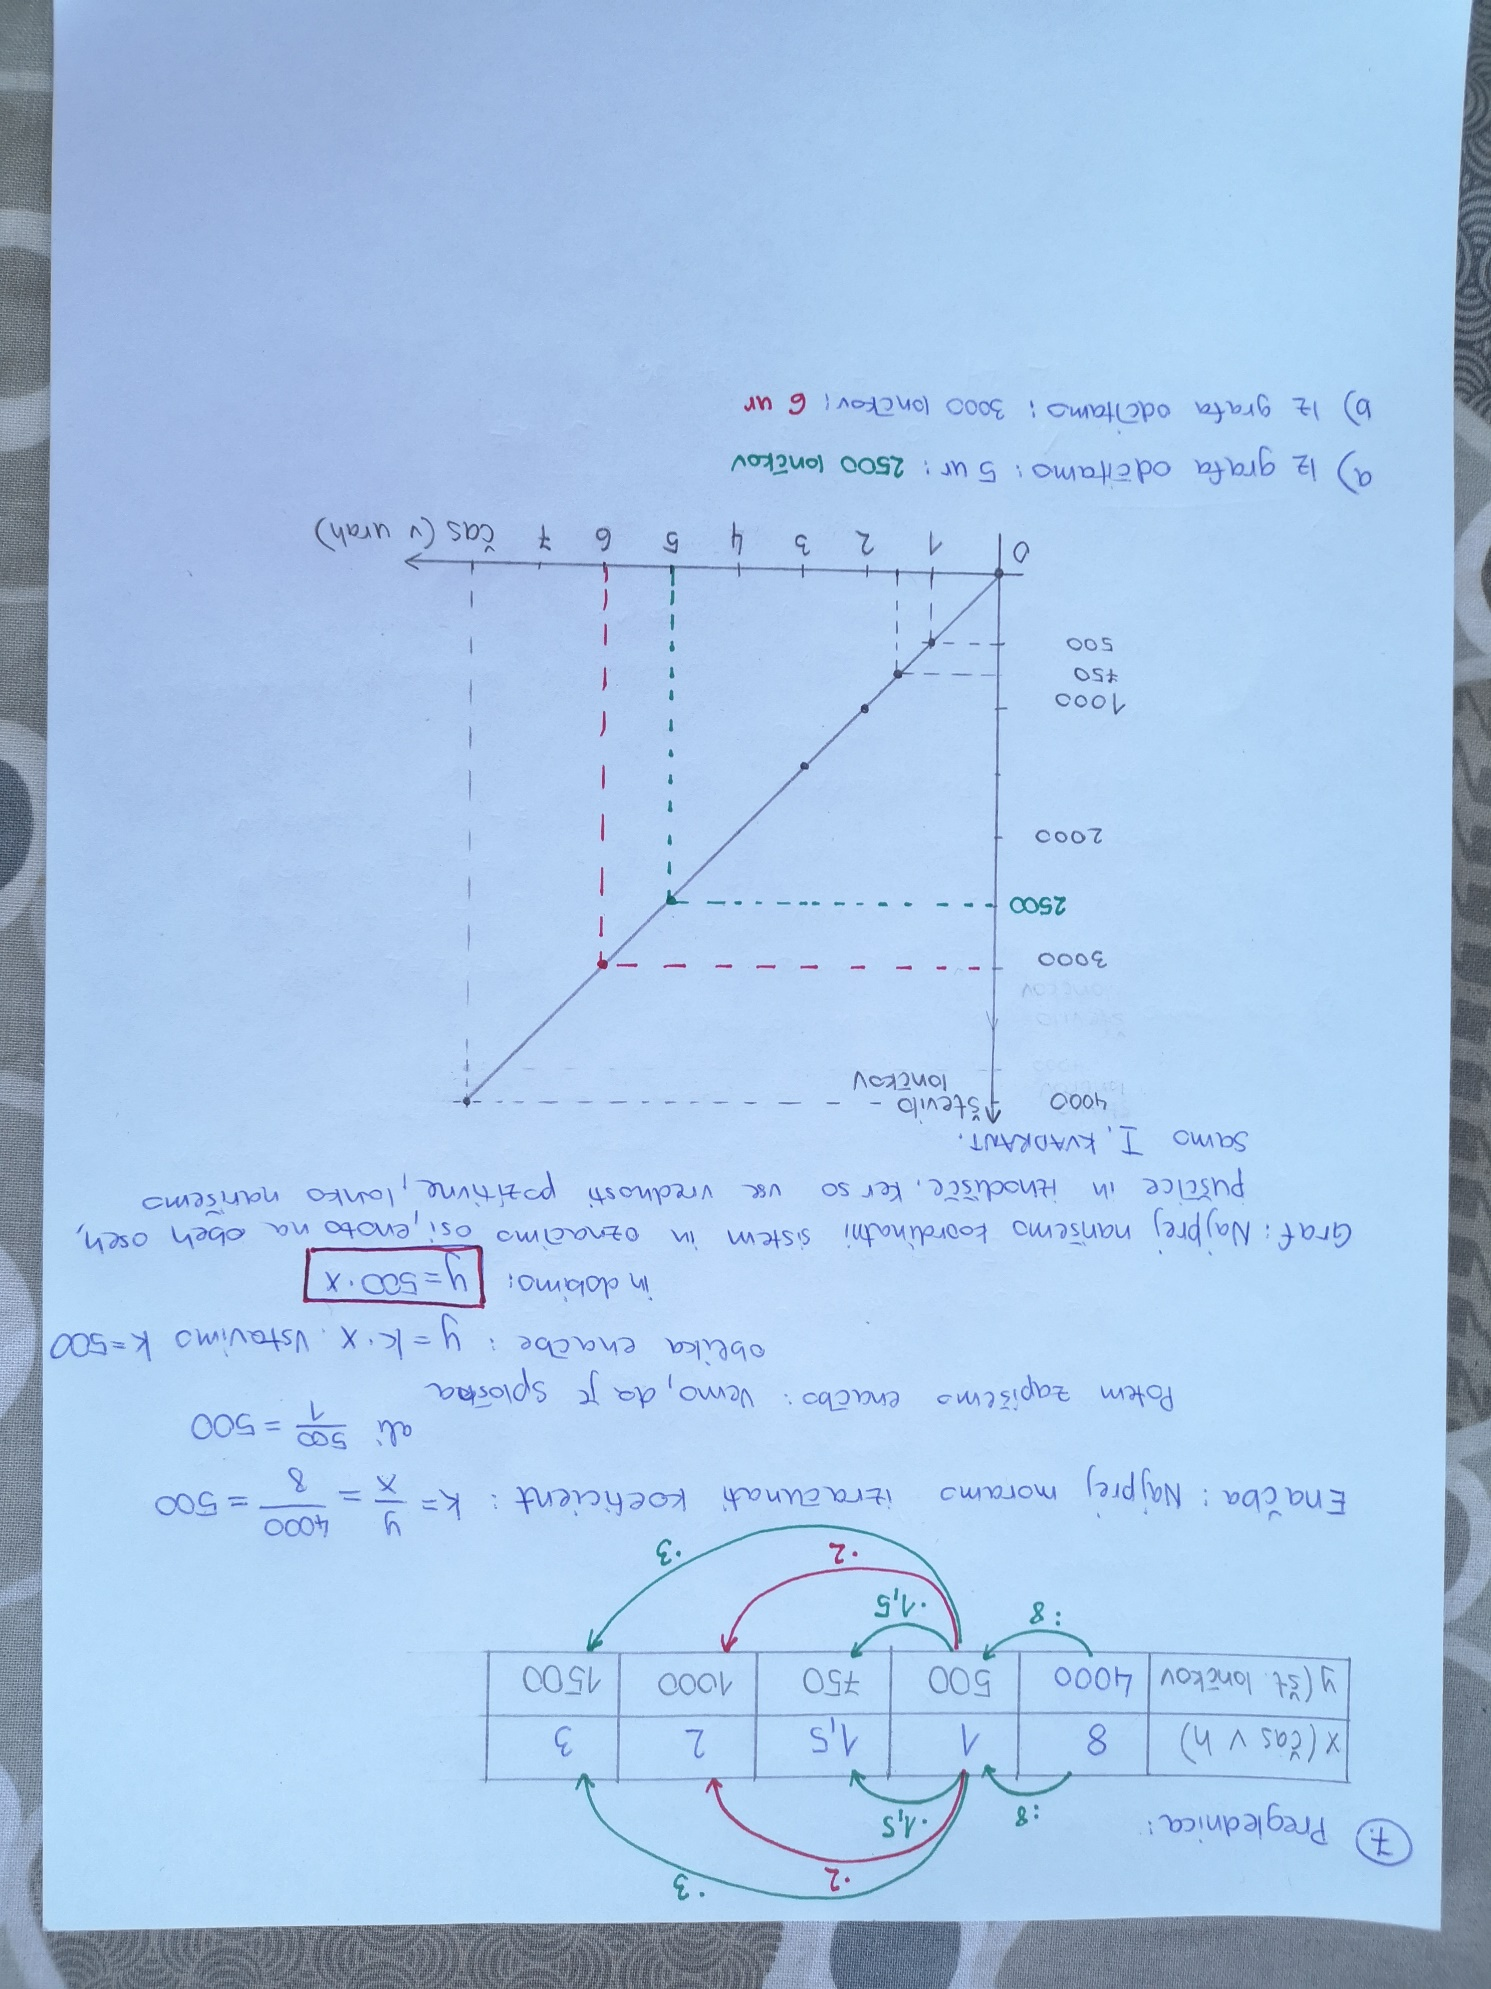 7. Preglednica:
·3
·2
:8 ·1,5
x (čas v h) 8 1 1,5 2 3
y (št. lončkov 4000 500 750 1000 1500
:8 ·1,5
·2
·3
Enačba: Najprej moramo izračunati koeficient: k = y/x = 4000/8 = 500
ali 500/1 = 500
Potem zapišemo enačbo: Vemo, da je splošna
oblika enačbe: y = k·x. Vstavimo k=500
in dobimo: y = 500·x
Graf: Najprej narišemo koordinatni sistem in označimo osi, enoto na obeh oseh,
puščice in izhodišče. Ker so vse vrednosti pozitivne, lahko narišemo
samo I. KVADRANT.
4000 število
lončkov
3000
2500
2000
1000
750
500
0 1 2 3 4 5 6 7 čas (v urah)
a) Iz grafa odčitamo: 5 ur: 2500 lončkov
b) Iz grafa odčitamo: 3000 lončkov: 6 ur